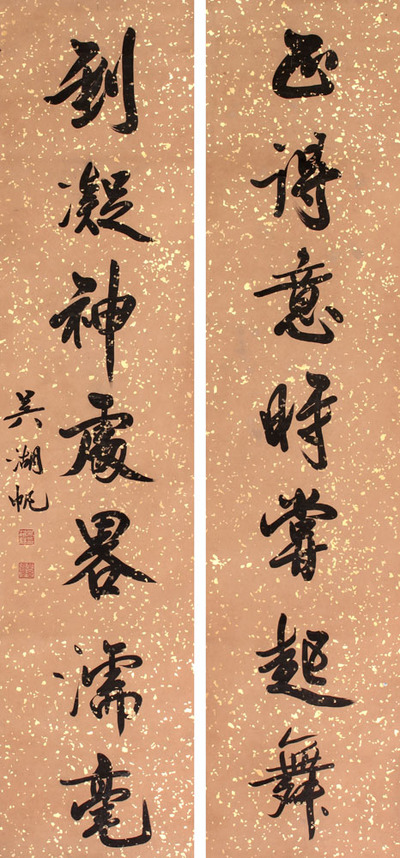 正得意時嘗起舞
到凝神處畧濡毫
吳湖帆